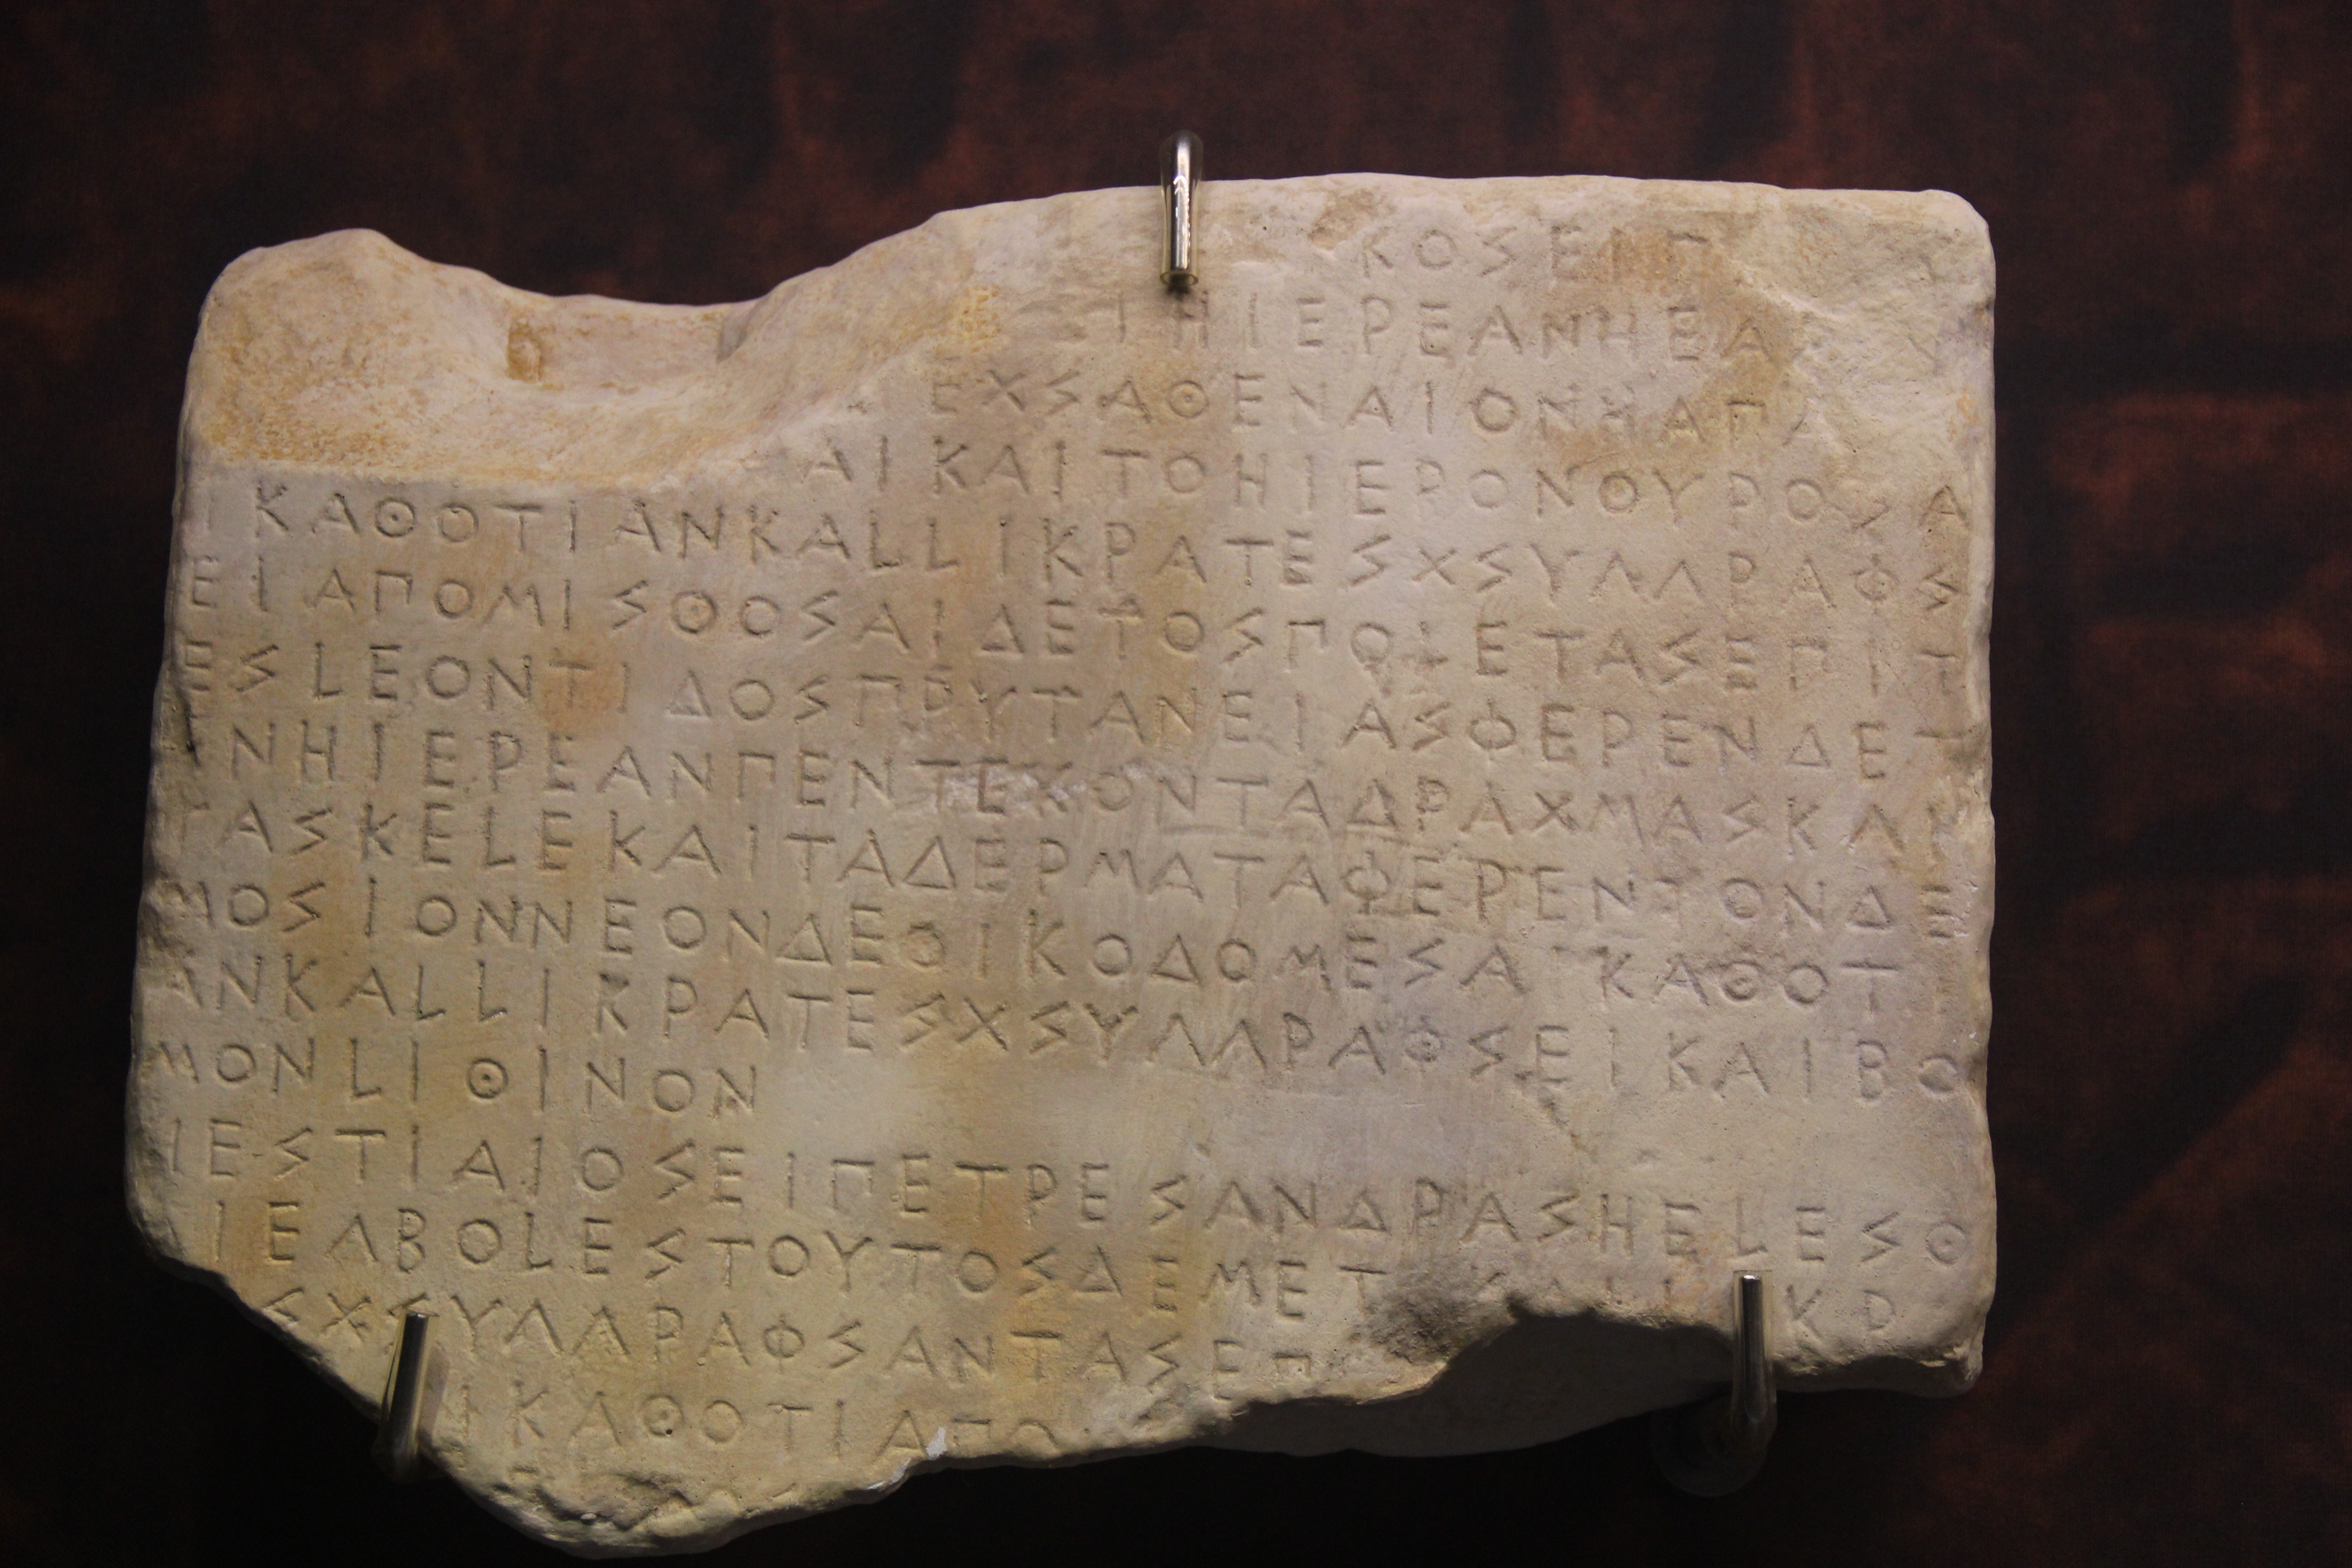 ΚΟΣΕΙΠ
ΙΗΙΕΡΕΑΝΗΕΑ
ΕΧΣΑΘΕΝΑΙΟΝΗΑΠΑ
ΑΙΚΑΙΤΟΗΙΕΡΟΝΘΥΡΟΣΑ
ΙΚΑΘΟΤΙΑΝΚΑΛΛΙΚΡΑΤΕΣΧΣΥΓΓΡΑΦΣ
ΕΙΑΠΟΜΙΣΘΟΣΑΙΔΕΤΟΣΠΟΛΕΤΑΣΕΠΙΤ
ΕΣΛΕΟΝΤΙΔΟΣΠΡΥΤΑΝΕΙΑΣΦΕΡΕΝΔΕΤ
ΕΝΗΙΕΡΕΑΝΠΕΝΤΕΚΟΝΤΑΔΡΑΧΜΑΣΚΑΙ
ΤΑΣΚΕΛΕΚΑΙΤΑΔΕΡΜΑΤΑΦΕΡΕΝΤΟΝΔΕ
ΜΟΣΙΟΝΝΕΟΝΔΕΟΙΚΟΔΟΜΕΣΑΙΚΑΘΟΤΙ
ΑΝΚΑΛΛΙΚΡΑΤΕΣΧΣΥΓΓΡΑΦΣΕΙΚΑΙΒΟ
ΜΟΝΛΙΘΙΝΟΝ
ΗΕΣΤΙΑΙΟΣΕΙΠΕΤΡΕΣΑΝΔΡΑΣΗΕΛΕΣΘ
ΑΙΕΓΒΟΛΕΣΤΟΥΤΟΣΔΕΜΕΤ ΚΡ
ΣΧΣΥΓΓΡΑΦΣΑΝΤΑΣΕΠ
ΙΚΑΘΟΤΙΑΠΟ